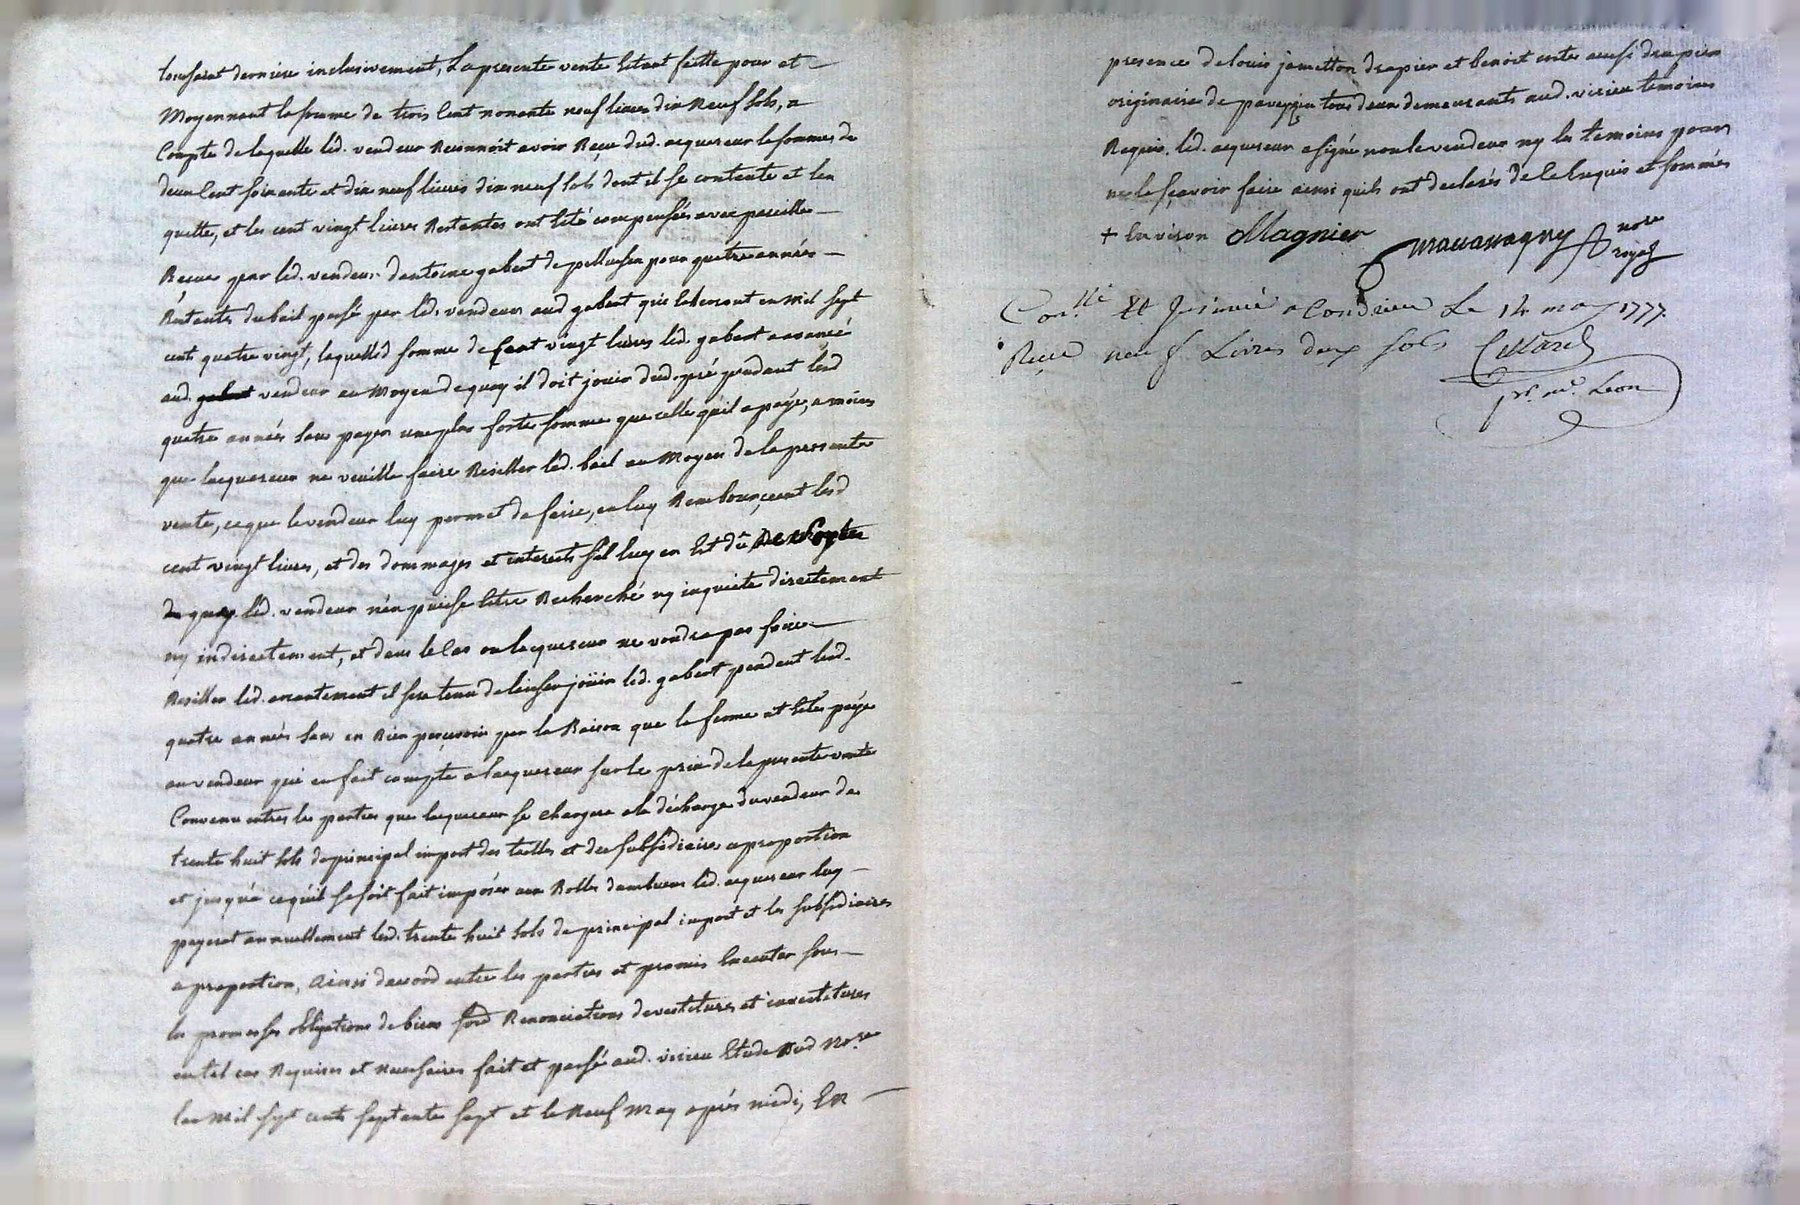 toussaint derniere inclusivement, La presente vente Estant faitte pour et
Moyennant la somme de trois Cent nonante neuf livres dix Neuf sols, a
Compte de laquelle led. vendeur Reconnoit avoir Reçue dud. acquereur la somme de
deux Cent soixante et dix neuf livres dix neuf sols dont il se contente et l'en
quitte, et les cent vingt livres Restantes ont Eté compensées avec pareille
Recue par led. vendeur d'antoine gabert de pelussin pour quatre années
Restante du bail passé par led. vendeur aud gabert qui Echeront en Mil sept
cent quatre vingt, laquelle somme de Cent vingt livres led. gabert a avancé
aud. vendeur au Moyen de quoy il doit jouir dud. pré pendant lesd
quatre années sans payer une plus forte somme que celle qu'il a payé, a moins
que lacquereur ne veuille faire Resilier led. bail au Moyen de la presente
vente, ce que le vendeur luy permet de faire, en luy Remboursant lesd
cent vingt livres, et des dommages et interests s'il luy en Est dû
de quoy led. vendeur n'en puisse Estre Recherché ny inquieté directement
ny indirectement, et dans le Cas ou lacquereur ne voudra pas faire
Resilier led. il sera tenu de laisser jöuir led. gabert pendant lesd.
quatre années sans en Rien percevoir par la Raison que la ferme at Estée payée
au vendeur qui en fait compte a lacquereur sur le prix de la presente vente
Convenu entres les parties que lacquereur se chargera a la décharge du vendeur de
trente huit sols de principal import des tailles et des subsidiaires a proportion
et jusqu'a ce qu'il se soit fait imposer aux Rolles led. acquereur luy
payerat annuellement lesd. trente huit sols de principal import et les subsidiaires
a proportion, Ainsi d'accord entre les parties et promis Executer sous
les promesses obligations de biens Renonciations devestitures et investitures
en tel cas Requises et Necessaires fait et passé aud. virieu Etude dud No.re
lan Mil sept cents septante sept et le Neuf May après midi, En
presence de louis jametton drapier et benoit aussi drapier
originaire de pavezin tous deux demeurants aud. virieu temoins
Requis. led. acquereur a signé non le vendeur ny les temoins pour
ne le sçavoir faire ainsi quils ont declarés de ce Enquis et sommés
+ Magnier
nore
royal
Con.llé Et Insinué a Condrieu Le 14 may 1777.
Reçu neuf Livres deux sols